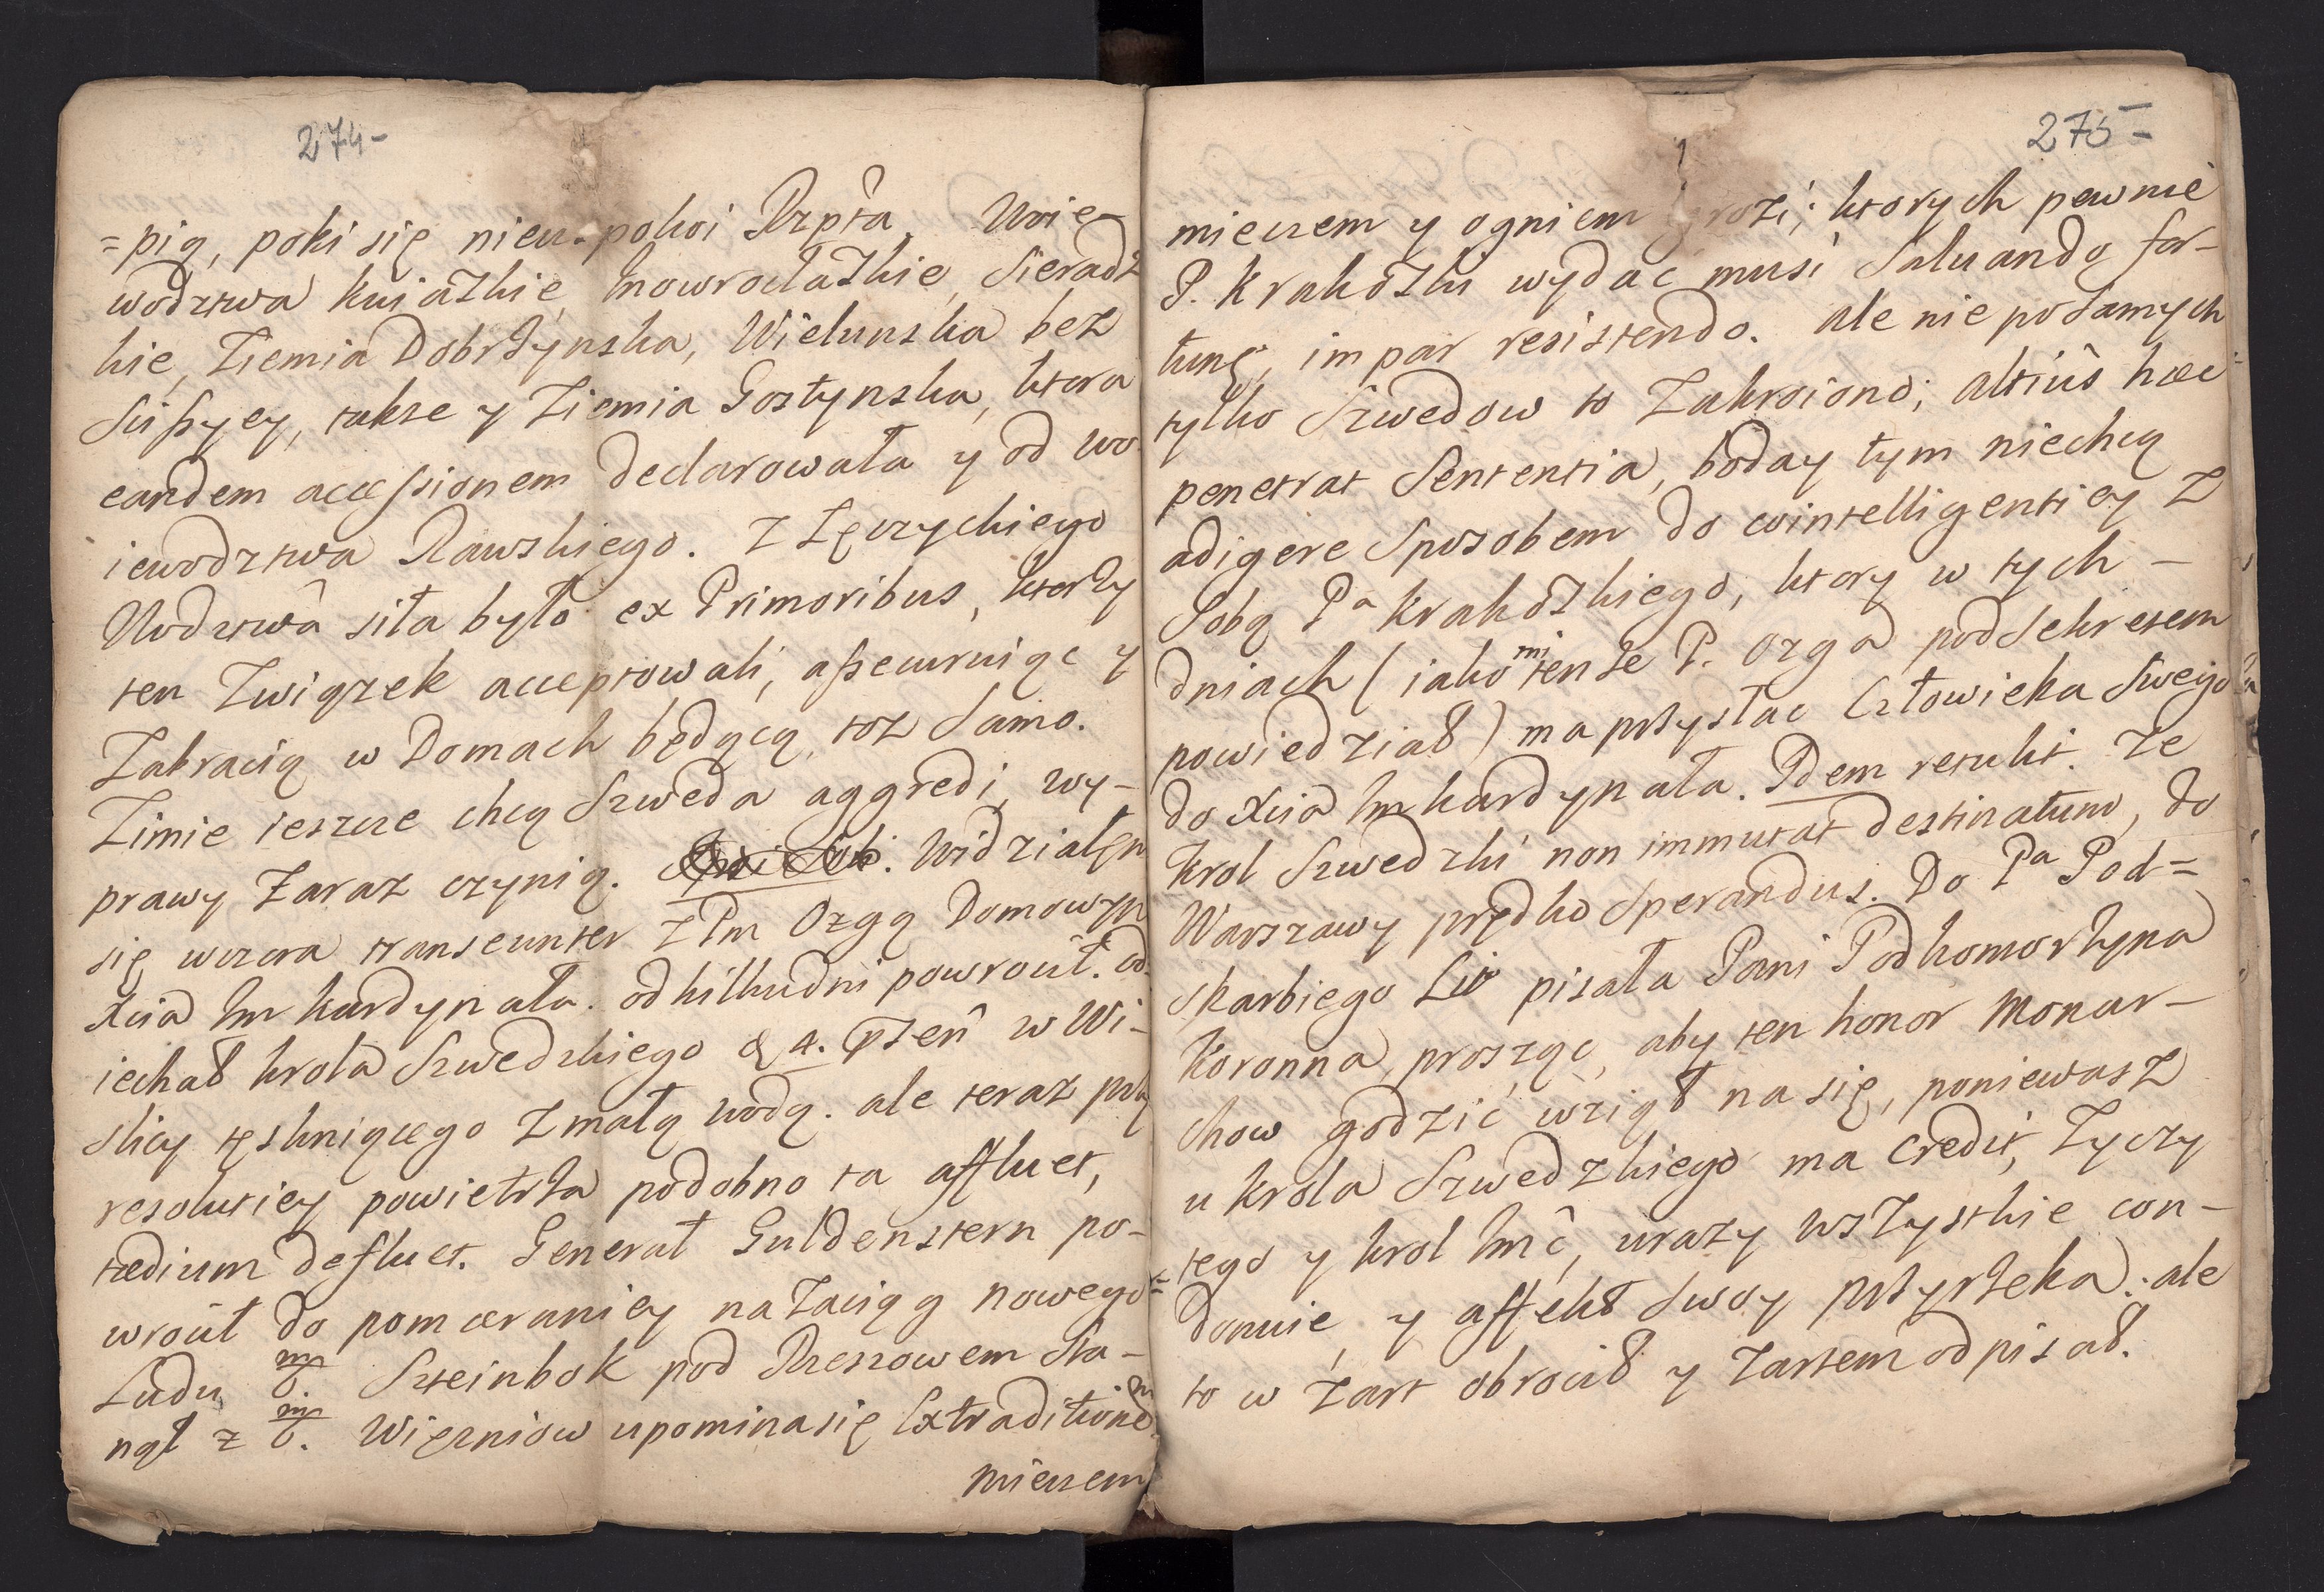 274-
=pią, poki się nieu.pokoi Rzpta. Woie-
wodztwa kuiaẜkie, Inowrocłaẜkie, Sieradz
kie, Ziemia Dobrzynska, Wielunska bez
Suspyey, takze y Ziemia Gostynska, ktora
eandem accessionem declarowała y od wo
iewodztwa Rawskiego. Z Łęczyckiego
Wodztwa siła było ex Primoribus, ktorzy
ten Związek acceptowali, assecuruiąc y
Zabracią w Domach będącą, toz Samo.
Zimie ieszcze chcą Szweda aggredi, wy-
prawy Zaraz czynią. Widziałem
się wczora transeunter z Pm Ozgą Domowym
Xcia Im kardynała. od kilkudni powrocił. od
iechał krola Szwedzkiego d. 4. pzen w Wi-
slicy tęskniącego Z małą wodą. ale teraz przy
resolutiey powietrza podobno ta affluet,
tædium defluet. Generał Guldenstern po-
wrocił do pomeraniey na Zaciąg nowego
Ludu Szteinbok pod Rzeszowem Sta-
nął z Więzniow upomina się Extraditionem
mieczem
275-
mieczem y ogniem grozi; ktorych pewnie
P. Krakoẜki wydac musi Saluando for-
tunę, impar resistendo. ale nie po Samych
tylko Szwedow to Zakroiono; altius hæc
penetrat Sententia, boday tym niechcą
adigere Sposobem do cointelligentiey Z
Sobą Pa krakoẜkiego, ktory w tych -
dniach (iako mi tenże P. Ozga pod Sekretem
powiedział) ma przysłac Człowieka Swego
do Xcia Im kardynała. Idem retulit. Ze
krol Szwedzki non immutat destinatum, do
Warszawy prędko Sperandus. Do Pa Pod=
skarbiego Lio pisała Pani Podkomorzyna
Koronna, prosząc, aby ten honor Monar-
chow godzić wziął na się, poniewasz
u krola Szwedzkiego ma credit, Zyczy
tego y krol Imć, urazy wszystkie con-
donuie, y affekt Swoy przyrzeka: ale
to w Zart obrocił y Zartem odpisał.